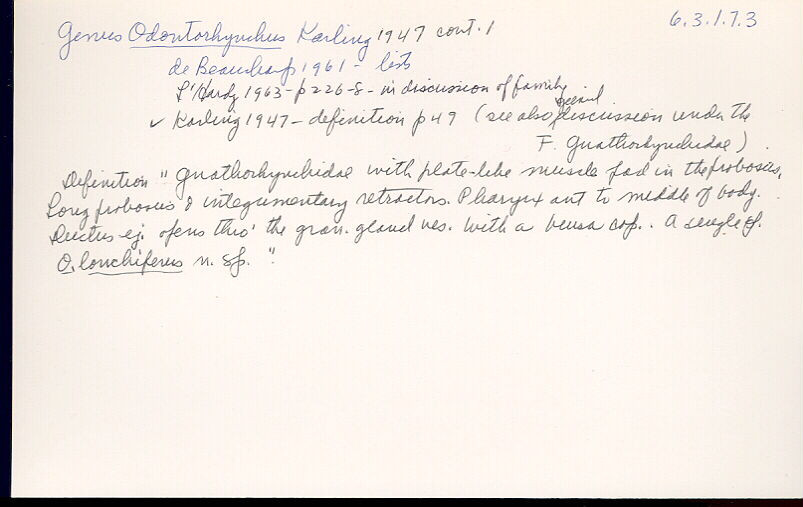 6.3.1.7.3
Genus Odontorhynchus Karling 1947 cont. 1
de Beauchamp 1961 - lists
L'Hardy 1963 - p 226-8 - in discussion of family
✓ Karling 1947 - definition p 49 (see also discussion under the
F. Gnathorhynchidae)
Definition "Gnathorhynchidae with plate-like muscle pad in the proboscis,
Long proboscis & integumentary retractors. Pharynx ant to middle of body.
Ductus ej. opens thro' the gran. gland ves. With a bursa cop.. A single sp.
O. lonchiferus n. sp. ".